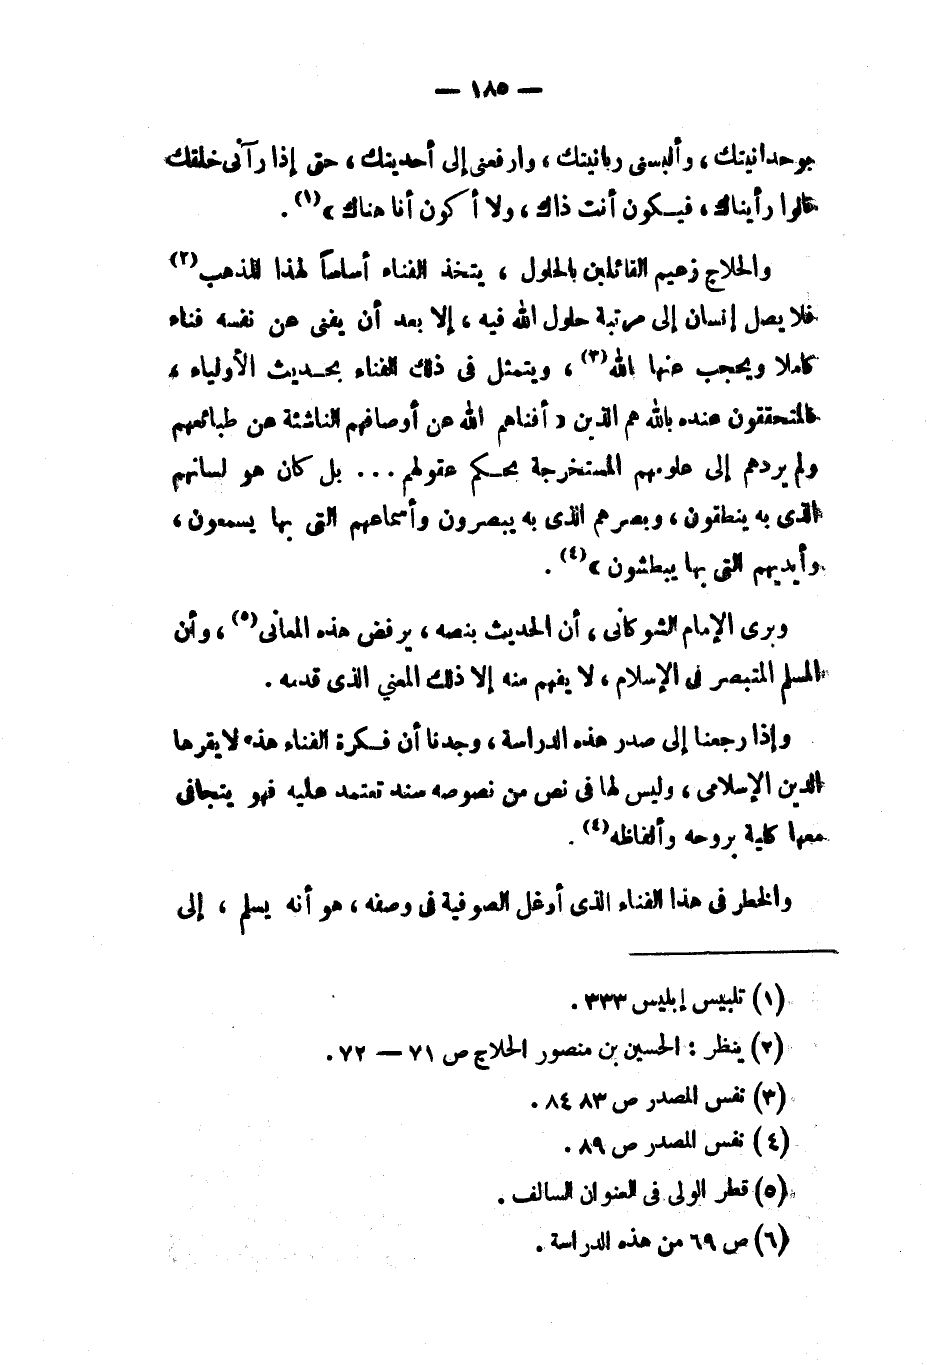 — ١٨٥ —
بوحدانيتك ، وألبسنى ربانيتك ، وارفعنى إلى أحديتك ، حتى إذا رآنى خلقك
قالوا رأيناك ، فيكون أنت ذاك ، ولا أكون أنا هناك »(١) .
والحلاج زعيم القائلين بالحلول ، يتخذ الفناء أساساً لهذا المذهب(٢)
فلا يصل إنسان إلى مرتبة حلول الله فيه ، إلا بعد أن يفنى عن نفسه فناء
كاملا ويحجب عنها الله(٣) ، ويتمثل فى ذلك الفناء بحديث الأولياء ،
فالمتحققون عنده بالله هم الذين « أفناهم الله عن أوصافهم الناشئة عن طبائعهم
ولم يردهم إلى علومهم المستخرجة بحكم عقولهم ... بل كان هو لسانهم
الذى به ينطقون ، وبصرهم الذى به يبصرون وأسماعهم التى بها يسمعون ،
وأيديهم التى بها يبطشون »(٤) .
ويرى الإمام الشوكانى ، أن الحديث بنصه ، يرفض هذه المعانى(٥) ، وأن
المسلم المتبصر فى الإسلام ، لا يفهم منه إلا ذلك المعني الذى قدمه .
وإذا رجعنا إلى صدر هذه الدراسة ، وجدنا أن فكرة الفناء هذه لايقرها
الدين الإسلامى ، وليس لها فى نص من نصوصه سند تعتمد عليه فهو يتجافى
معها كلية بروحه وألفاظه(٤) .
والخطر فى هذا الفناء الذى أوغل الصوفية فى وصفه ، هو أنه يسلم ، إلى
(١) تلبيس إبليس ٣٣٣ .
(٢) ينظر : الحسين بن منصور الحلاج ص ٧١ — ٧٢ .
(٣) نفس المصدر ص ٨٣ ٨٤ .
(٤) نفس المصدر ص ٨٩ .
(٥) قطر الولى فى العنوان السالف .
(٦) ص ٦٩ من هذه الدراسة .